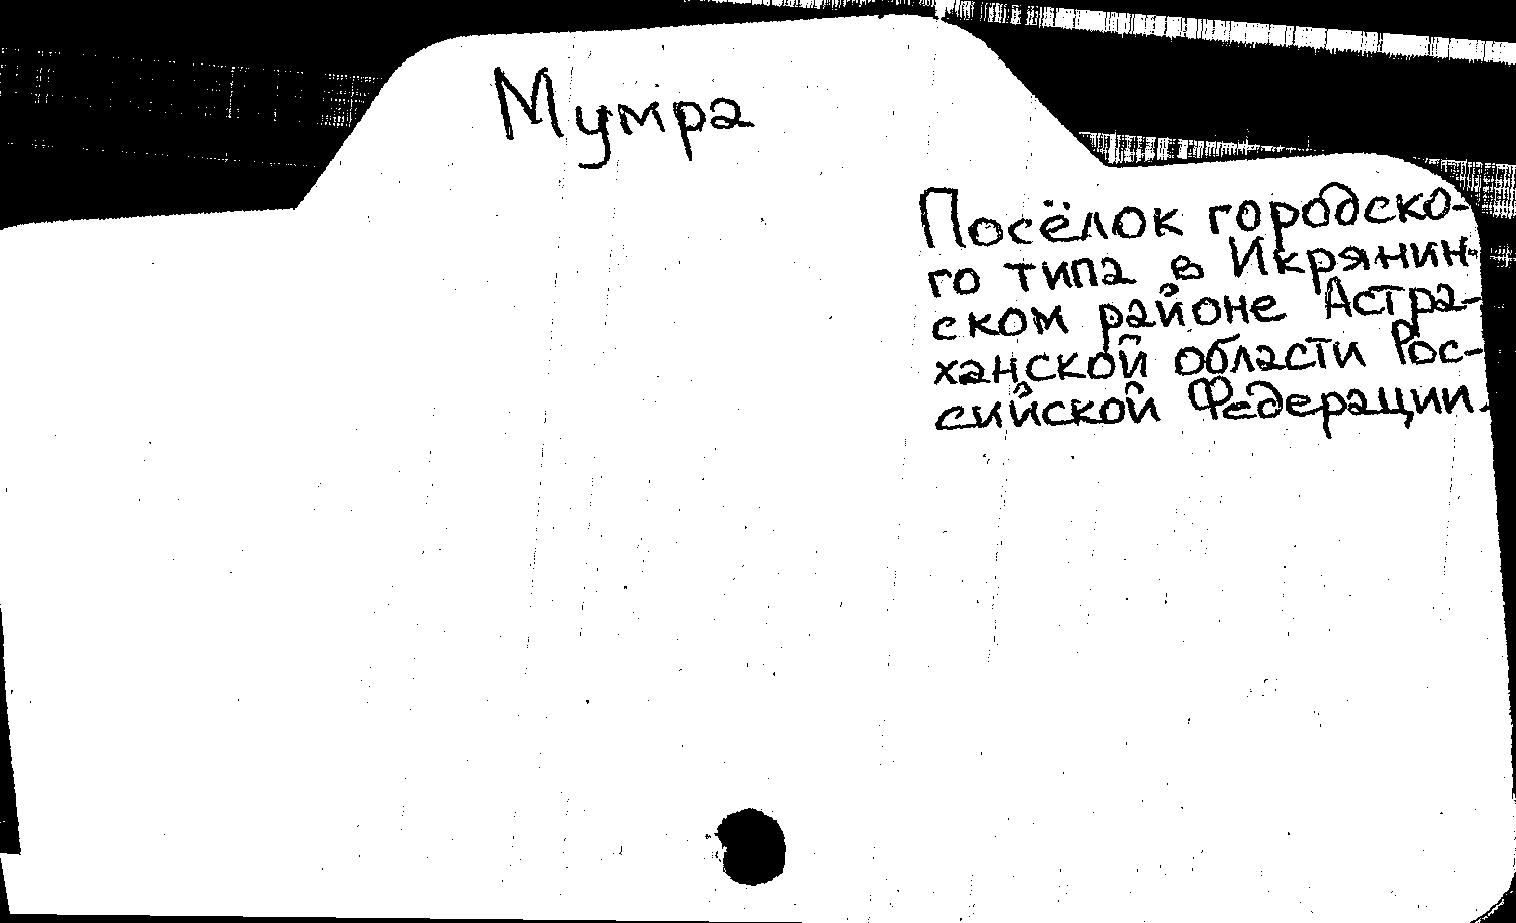 Мумра
Посёлок городско-
го типа в Икрянин-
ском районе Астра-
ханской области Рос-
сийской Федерации.